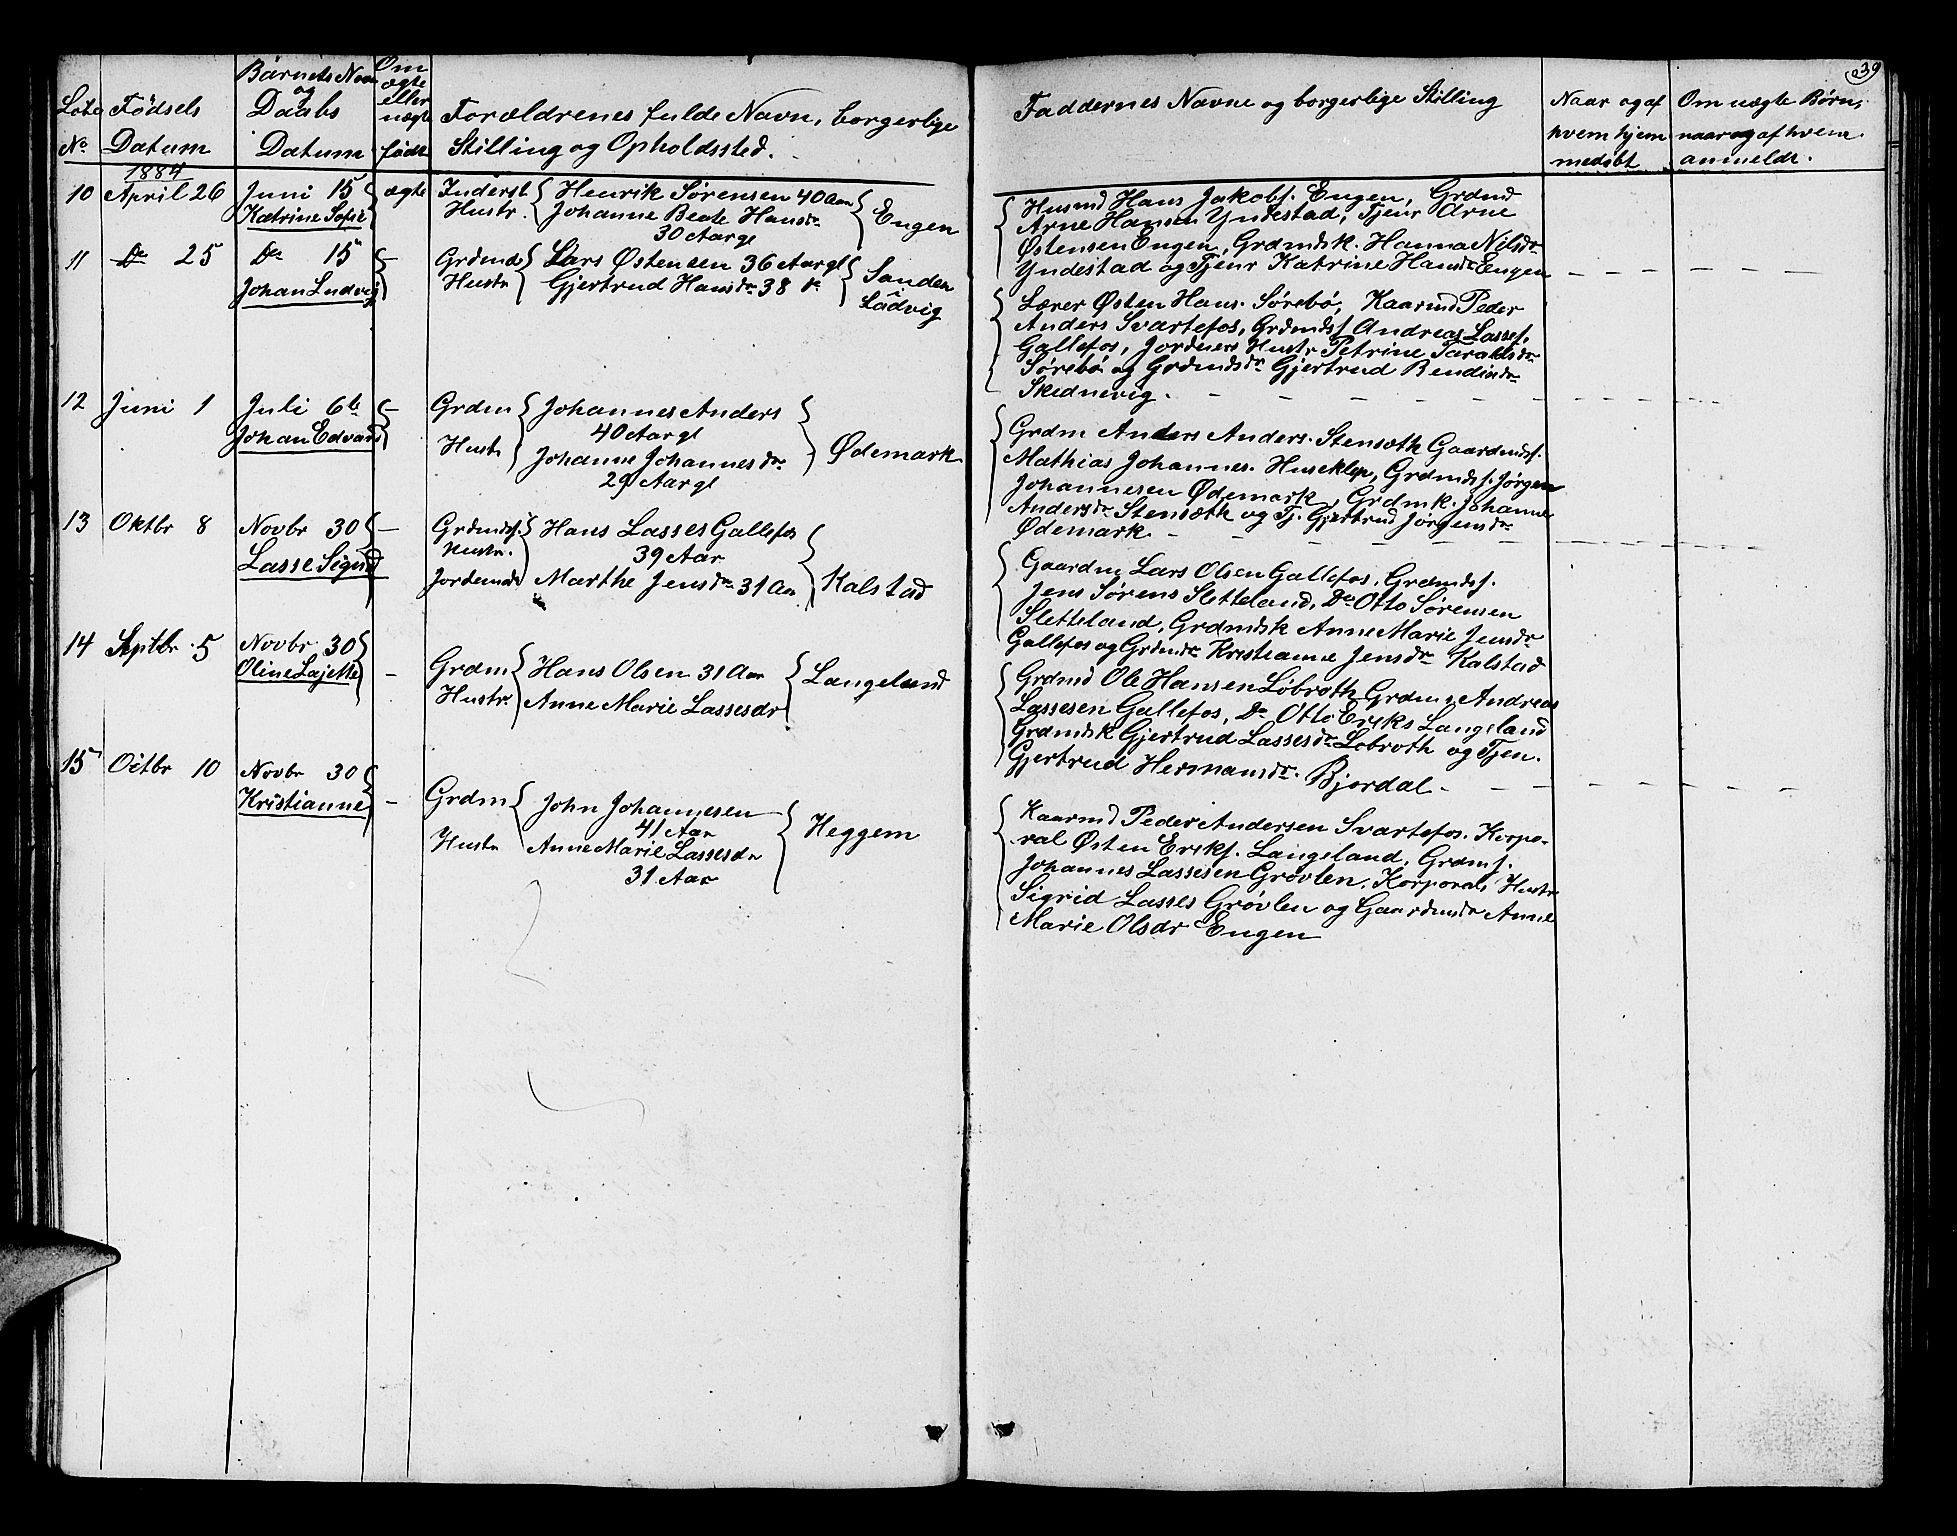 39
Löbe No
Fødsels Datum
Barnets Navn og Daabs Datum
Om ægte eller uægte født
Forældrenes fulde Navn, borgerlige
Stilling og Opholdssted.
Faddernes Navne og borgerlige Stilling
Naar og af
hvem hjem
medøbt
Om uægte Børn,
naar og af hvem
anmeldt.
1884
10 April 26 Juni 15 ægte Inderst Henrik Sørensen 40 Aar
Katrine Sofie Hustr. Johanne Beate Hansdr Engen
30 Aargl
Husmd Hans Jakobs. Engen, Grdmd
Arne Hansen Yndestad, Tjenr Arne
Østensen Engen, Grdmdsk. Hanna Nilsdr
Yndestad og Tjenr Katrine Hansdr Engen
11 Do 25 Do 15 – Grdmd Lars Østensen 36 Aargl Sanden
Johan Ludvig Hustr Gjertrud Hansdr 38 Do i
Ladvig
Lærer Østen Hans. Sørebö, Kaarmd Peder
Anders Svartefos, Grdmds. Andreas Lasses.
Gallefos, Jordmers Hustr Petrine Taraldsdr
Sørebö og Grdmdsdr Gjertrud Bendiksdr
Skednevig.
12 Juni 1 Juli 6te – Grdm Johannes Anders
Johan Edvard 40 Aargl
Hustr Johanne Johannesdr Ødemark
29 Aargl
Grdm Anders Anders. Stensæth Gaardmds.
Mathias Johannes. Huseklep, Grdmds. Jørgen
Johannesen Ødemark, Grdmk. Johanne
Andersdr Stensæth og Tj. Gjertrud Jørgensdr
Ødemark
13 Oktbr 8 Novbr 30 – Grdmds. Hans Lasses Gallefos
Lasse Sigurd Hustr. 39 Aar
Jordemdr Marthe Jensdr 31 Aar Kalstad
Gaardm Lars Olsen Gallefos, Grdmds.
Jens Sørens Sletteland, Do Otto Sørensen
Sletteland, Grdmdsk Anne Marie Jensdr
Gallefos og Grdmdr Kristianne Jensdr Kalstad
14 Septbr. 5 Novbr 30
Oline Lajette – Grdm Hans Olsen 31 Aar Langeland
Hustr. Anne Marie Lassesdr
Grdmd Ole Hansen Löbroth Grdms Andreas
Lassesen Gallefos, Do Otto Eriks Langeland
Grdmdsk Gjertrud Lassesdr Löbroth og Tjen.
Gjertrud Hermansdr. Bjordal
15 Octbr 10 Novbr 30
Kristianne – Grdm John Johannesen
41 Aar Heggem
Hustr Anne Marie Lassesdr
31 Aar
Kaarmd Peder Andersen Svartefos. Korpo-
ral Østen Eriks. Langeland, Grdms.
Johannes Lassesen Grøvlen, Korporals Hustr
Sigrid Lasses Grøvlen og Gaardmdr Anne
Marie Olsdr Engen